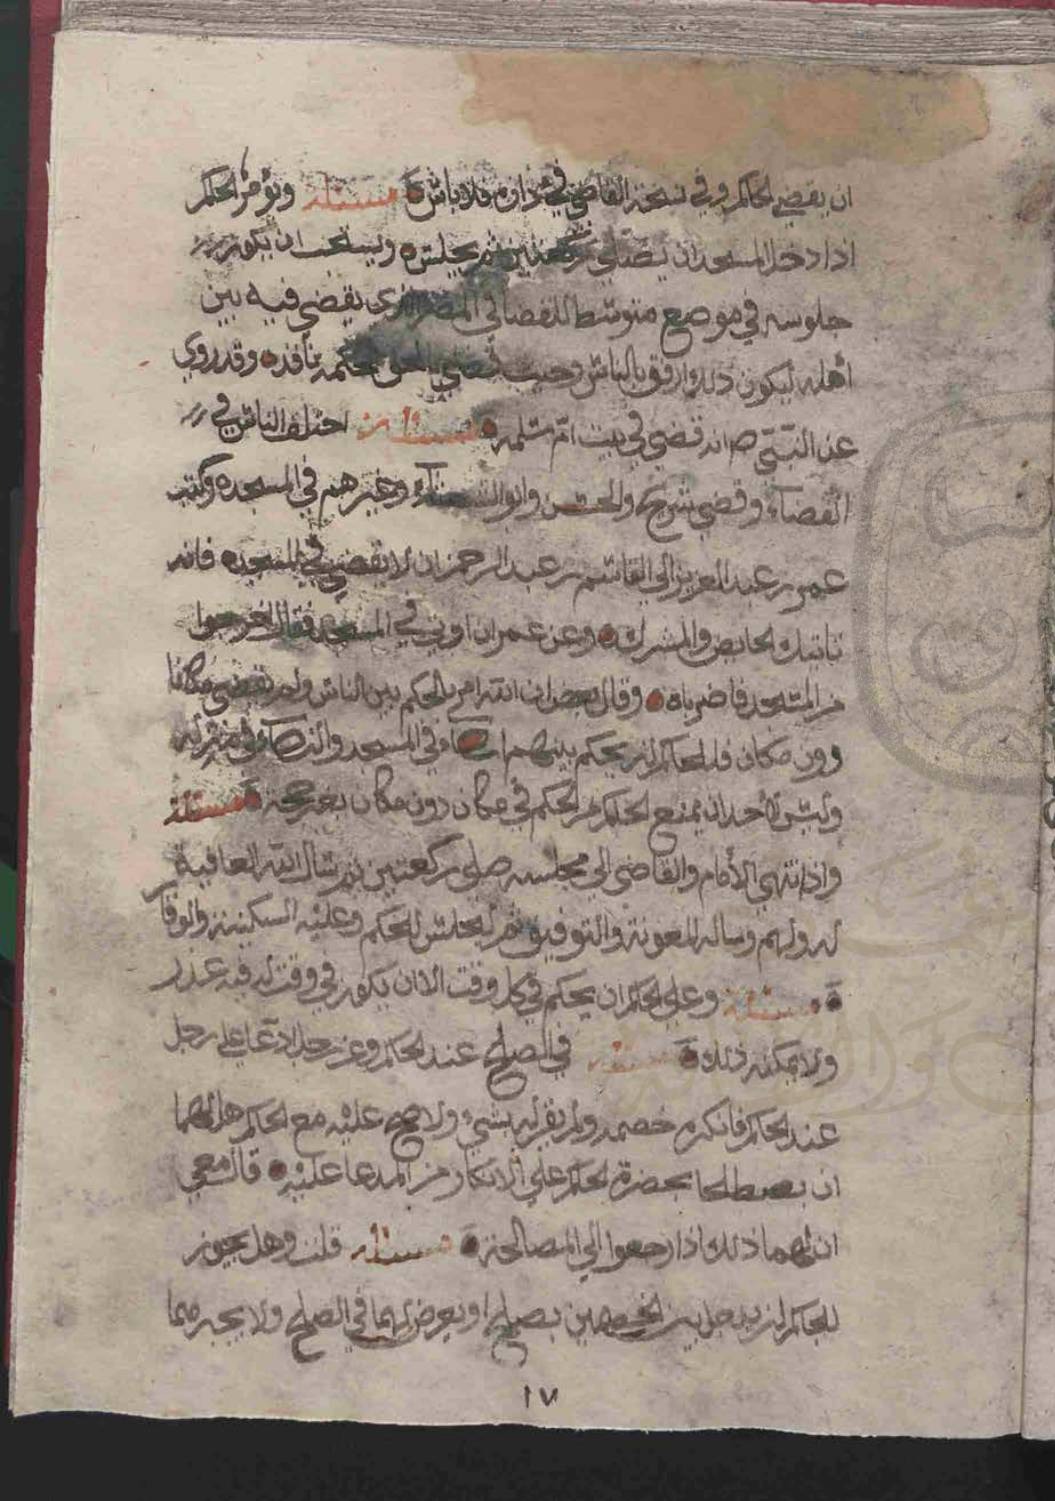 ان يقضي الحاكم وفي نسخة القاضي في داره فلا باس مسئلة ويؤمر الحاكم
اذا دخل المسجد ان يصلي ركعتين ثم يجلس ويستحب ان يكون
جلوسه في موضع متوسط للقضا في المصر الذي يقضي فيه بين
أهله ليكون ذلك ارفق بالناس وحيث قضي بالحق فحكمه نافذ وقد روي
عن النبي ص انه قضي في بيت ام سلمه مسئلة اختلف الناس في
القضاء وقضي شريح والحسن وابو الشعثاء وغيرهم في المسجد وكتب
عمر بن عبد العزيز الي القاسم بن عبد الرحمن ان لا تقضي في المسجد فانه
تاتيك الحايض والمشرك وعن عمر ان اوتي في المسجد فقال اخرجوا
من المسجد فاضرباه وقال بعض ان الله امر بالحكم بين الناس ولم يقض مكانا
دون مكان فللحاكم ان يحكم بينهم ان شاء في المسجد وان شاء في منزله
وليس لأحد ان يمنع الحاكم من الحكم في مكان دون مكان بغير حجة مسئلة
واذا انتهي الأمام والقاضي الي مجلسه صلي ركعتين ثم سال الله العافية
له ولهم وساله المعونة والتوفيق ثم ليجلس للحكم وعليه السكينة والوقار
مسئلة وعلي الحاكم ان يحكم في كل وقت الا ان يكون في وقت له فيه عذر
ولا يمكنه ذلك مسئلة في الصلح عند الحاكم وعن رجل ادعا علي رجل
عند الحاكم فانكره خصمه ولم يقر له بشيء ولا صح عليه مع الحاكم هل لهما
ان يصطلحا بحضرة الحاكم علي الانكار من المدعا عليه قال معي
ان لهما ذلك اذا رجعوا الي المصالحة مسئلة قلت وهل يجوز
للحاكم ان يدخل بين الخصمين بصلح او يعرض لهما في الصلح ولا يجبرهما
١٧